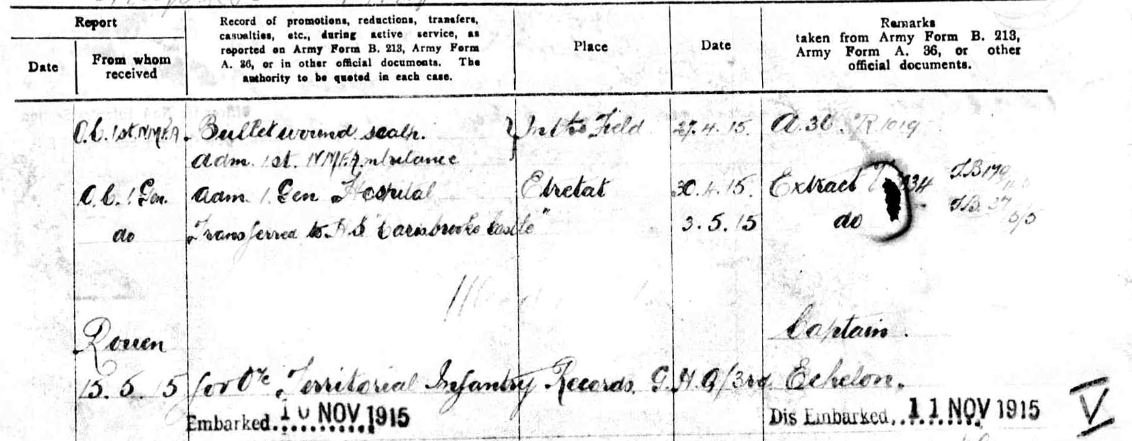 Report
Record of promotions, reductions, transfers, casualties, etc., during active service, as reported on Army Form B. 213, Army Form A. 36, or in other official documents. The authority to be quoted in each case.
Place
Date
Remarks
taken from Army Form B. 213, Army Form A. 36, or other official documents.
Date
From whom received
O.C. 1st N.M.F.A. Bullet wound scalp. } In the Field 27.4.15. A.36. R1019
adm. 1st. N.M.F. Ambulance
O.C. 1 Gen. adm 1 Gen Hospital Etretat 30.4.15. Extract 734
do Transferred to H.S "Carisbrooke Castle" 3.5.15 do
Rouen Captain.
15.5.15 for O i/c Territorial Infantry Records. G.H.Q/3rd Echelon.
Embarked 10 NOV 1915 Dis Embarked 11 NOV 1915 V